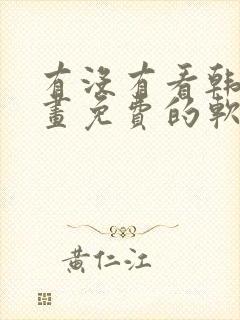 有没有看韩
画免费的软
黄仁江